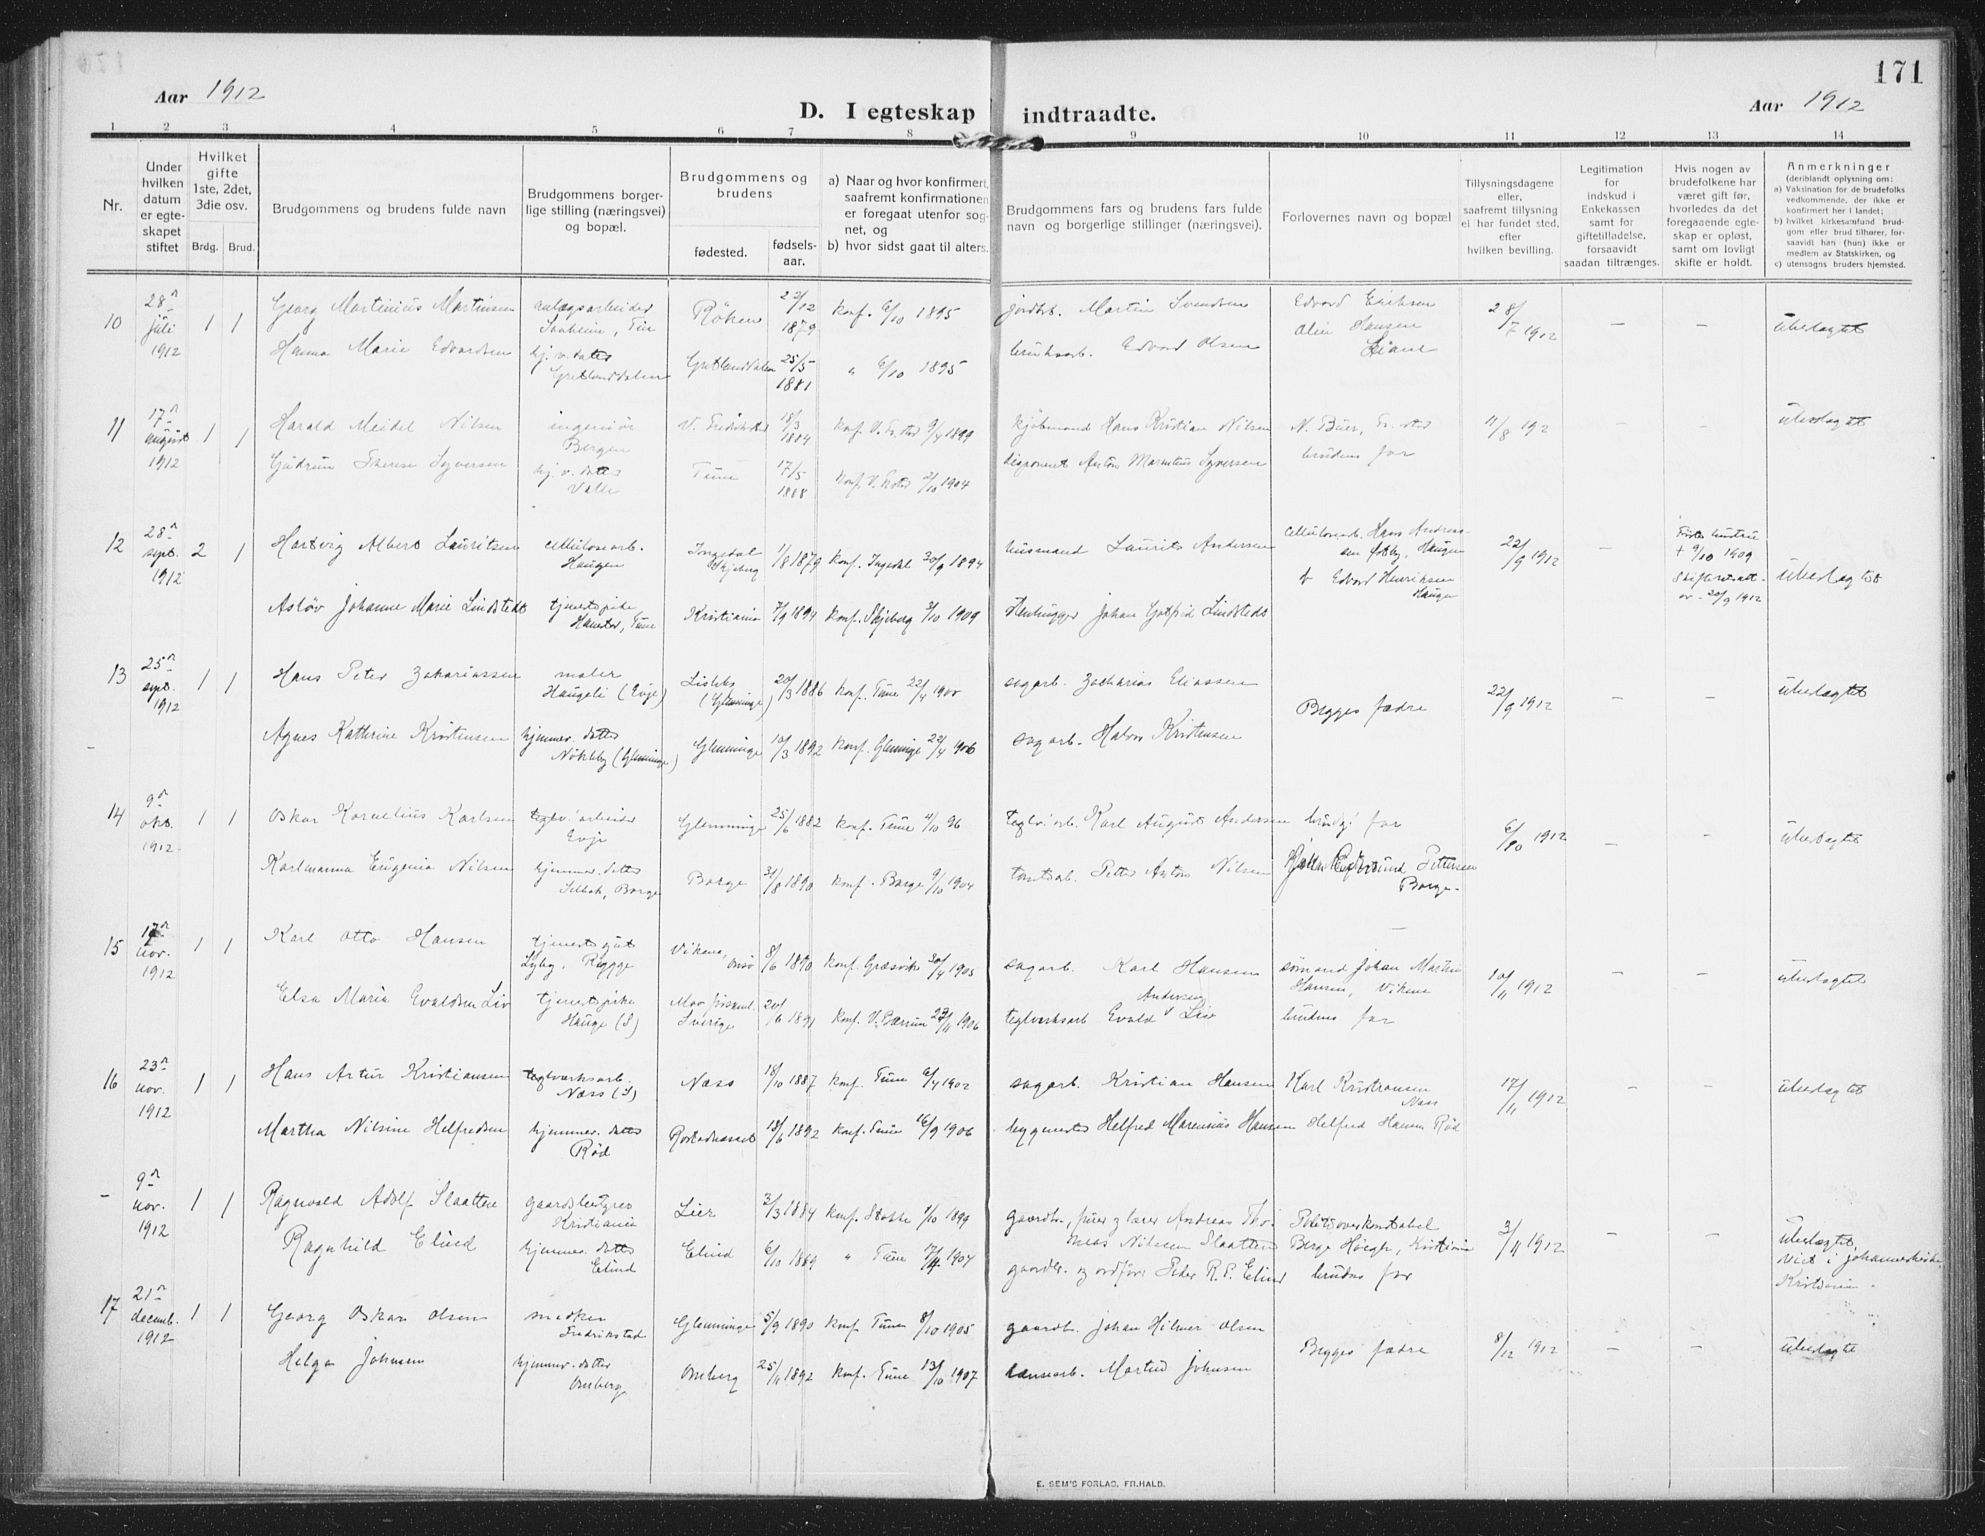 171
Aar 1912
D. I egteskap indtraadte.
Aar 1912
1 2 3 4 5 6 7 8 9 10 11 12 13 14
Nr.
Under hvilken datum er egteskapet stiftet
Hvilket gifte 1ste, 2det, 3die osv.
Brdg. Brud.
Brudgommens og brudens fulde navn
Brudgommens borgerlige stilling (næringsvei) og bopæl.
Brudgommens og brudens
fødested.
fødselsaar.
a) Naar og hvor konfirmert, saafremt konfirmationen er foregaat utenfor sognet, og
b) hvor sidst gaat til alters.
Brudgommens fars og brudens fars fulde navn og borgerlige stillinger (næringsvei).
Forlovernes navn og bopæl
Tillysningsdagene eller, saafremt tillysning ei har fundet sted, efter hvilken bevilling.
Legitimation for indskud i Enkekassen samt for giftetilladelse, forsaavidt saadan tiltrænges.
Hvis nogen av brudefolkene har været gift før, hvorledes da det foregaaende egteskap er opløst, samt om lovligt skifte er holdt.
Anmerkninger
(deriblandt oplysning om:
a) Vaksination for de brudefolks vedkommende, der ikke er konfirmert her i landet;
b) hvilket kirkesamfund brudgom eller brud tilhører, forsaavidt han (hun) ikke er medlem av Statskirken, og
c) utensogns bruders hjemsted.
10 28n juli 1912 1 1 Georg Martinius Martinsen anlægsarbeider Saaheim, Tin Røken 23/12 1879 konf. 6/10 1895 jordbr. Martin Svendsen Edvard Eriksen Olin Hansen 28/7 1912 - - ubeslegtet
Hanna Marie Edvardsen hj. v. datter Gretlanddalen Gretlanddalen 25/5 1881 " 6/10 1895 bruksarb. Edvard Olsen
11 17n august 1912 1 1 Harald Meidel Nilsen ingeniør Bergen V. Fredrikstad 18/3 1884 konf. V. Fr.stad 9/4 1899 kjøbmand Hans Kristian Nilsen N. Buer, Fr.stad 11/8 192 - - ubeslegtet
Gudrun Therese Syversen hj. v. datter Valle Tune 17/5 1888 konf. 2/10 1904 disponent Anton Marentius Syversen brudens far
12 28n sept. 1912 2 1 Hartvig Albert Lauritsen cellulosearb. Haugen Ingedal Skjeberg 1/8 1879 konf. Ingedal 30/9 1894 husmand Laurits Andersen cellulosearb. Hans Andreassen Haugen 22/9 1912 - Første hustrue + 9/10 1909 20/9 1912 ubeslegtet
Asløv Johanne Marie Lindstedt tjenestepike Hanestad, Tune Kristiania 7/9 1894 konf. Skjeberg 3/10 1909 Stenhugger Johan Gotfrid Lindstedt Edvard Henriksen Haugen
13 25n sept. 1912 1 1 Hans Peter Zakariassen maler Haugeli (Evje) Lisleby (Glemminge) 20/3 1886 konf. Tune 22/4 1900 sagarb. Zacharias Eliassen Begges fædre 22/9 1912 - - ubeslegtet
Agnes Kathrine Kristensen hjemmev. datter Nøkleby (Glemminge) Glemminge 10/3 1892 konf. Glemminge 22/4 1906 sagarb. Halvor Kristensen
14 9n okt. 1912 1 1 Oskar Kornelius Karlsen teglv. arbeider Evje Glemminge 25/6 1882 konf. Tune 4/10 96 teglv. arb. Karl August Andersen brudg. far 6/10 1912 - - ubeslegtet
Karlmanna Eugenia Nilsen hjemmev. datter Selbak, Borge Borge 31/8 1890 konf. Borge 9/10 1904 tomtearb. Petter Anton Nilsen Pettersen Borge.
15 17n nov. 1912 1 1 Karl Otto Hansen tjenestegut Lyby, Rygge Vikene, Onsø 8/6 1890 konf. Græsvik 30/4 1905 sagarb. Karl Hansen sømand Johan Martin Hansen, Vikene 10/11 1912 - - ubeslegtet
Elsa Maria Evaldsen Liv tjenestepike Hauge (S) Sverige 20/6 1891 konf. V. Bærum 1906 teglverksarb Evald Andersen Liv brudens far
16 23n nov. 1912 1 1 Hans Artur Kristiansen teglverksarb. Næss (S) Næss 18/10 1887 konf. Tune 6/4 1902 sagarb. Kristian Hansen Karl Kristiansen Næss 17/11 1912 - - ubeslegtet
Martha Nilsine Helfredsen hjemmev. datter Rød 18/6 1892 konf. Tune 16/9 1906 bygmester Helfred Marensius Hansen Helfred Hansen Rød
- 9n nov. 1912 1 1 Ragnvald Adolf Slaatten gaardsbestyrer Kristiania Lier 3/3 1884 konf. Stokke 1/10 1899 gaardbr., Andreas Thomas Nilssen Slaatten Politioverkonstabel Berge Høegh, Kristiania 3/11 1912 - - ubeslegtet viet i Johanneskirke, Kristiania.
Ragnhild Elind hjemmev. datter Elind Elind 6/10 1889 " Tune 17/4 1904 gaardbr. og ordfører Peder R. P. Elind brudens far
17 21n decemb. 1912 1 1 Georg Oskar Olsen snedker Fredrikstad Glemminge 5/9 1890 konf. Tune 8/10 1905 gaardb. Johan Hilmer Olsen Begges fædre 8/12 1912 - - ubeslegtet
Helga Johnsen hjemmev. datter Omberg Omberg 25/11 1892 konf. Tune 13/10 1907 lænsearb. Martin Johnsen
E. SEM'S FORLAG, FR.HALD.